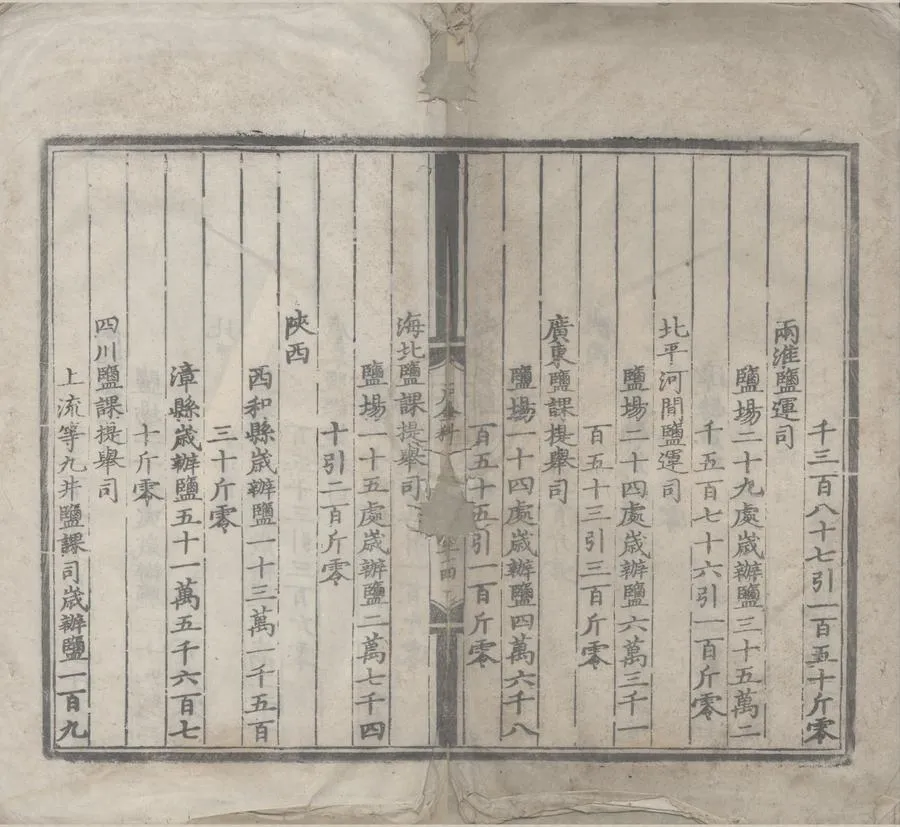 千三百八十七引一百五十斤零
兩淮鹽運司
鹽場二十九處歲辦鹽三十五萬二
千五百七十六引一百斤零
北平河間鹽運司
鹽場二十四處歲辦鹽六萬三千一
百五十三引三百斤零
廣東鹽課提舉司
鹽場一十四處歲辦鹽四萬六千八
百五十五引一百斤零
十四
海北鹽課提舉司
鹽場一十五處歲辦鹽二萬七千四
十引二百斤零
陝西
西和縣歲辦鹽一十三萬一千五百
三十斤零
漳縣歲辦鹽五十一萬五千六百七
十斤零
四川鹽課提舉司
上流等九井鹽課司歲辦鹽一百九